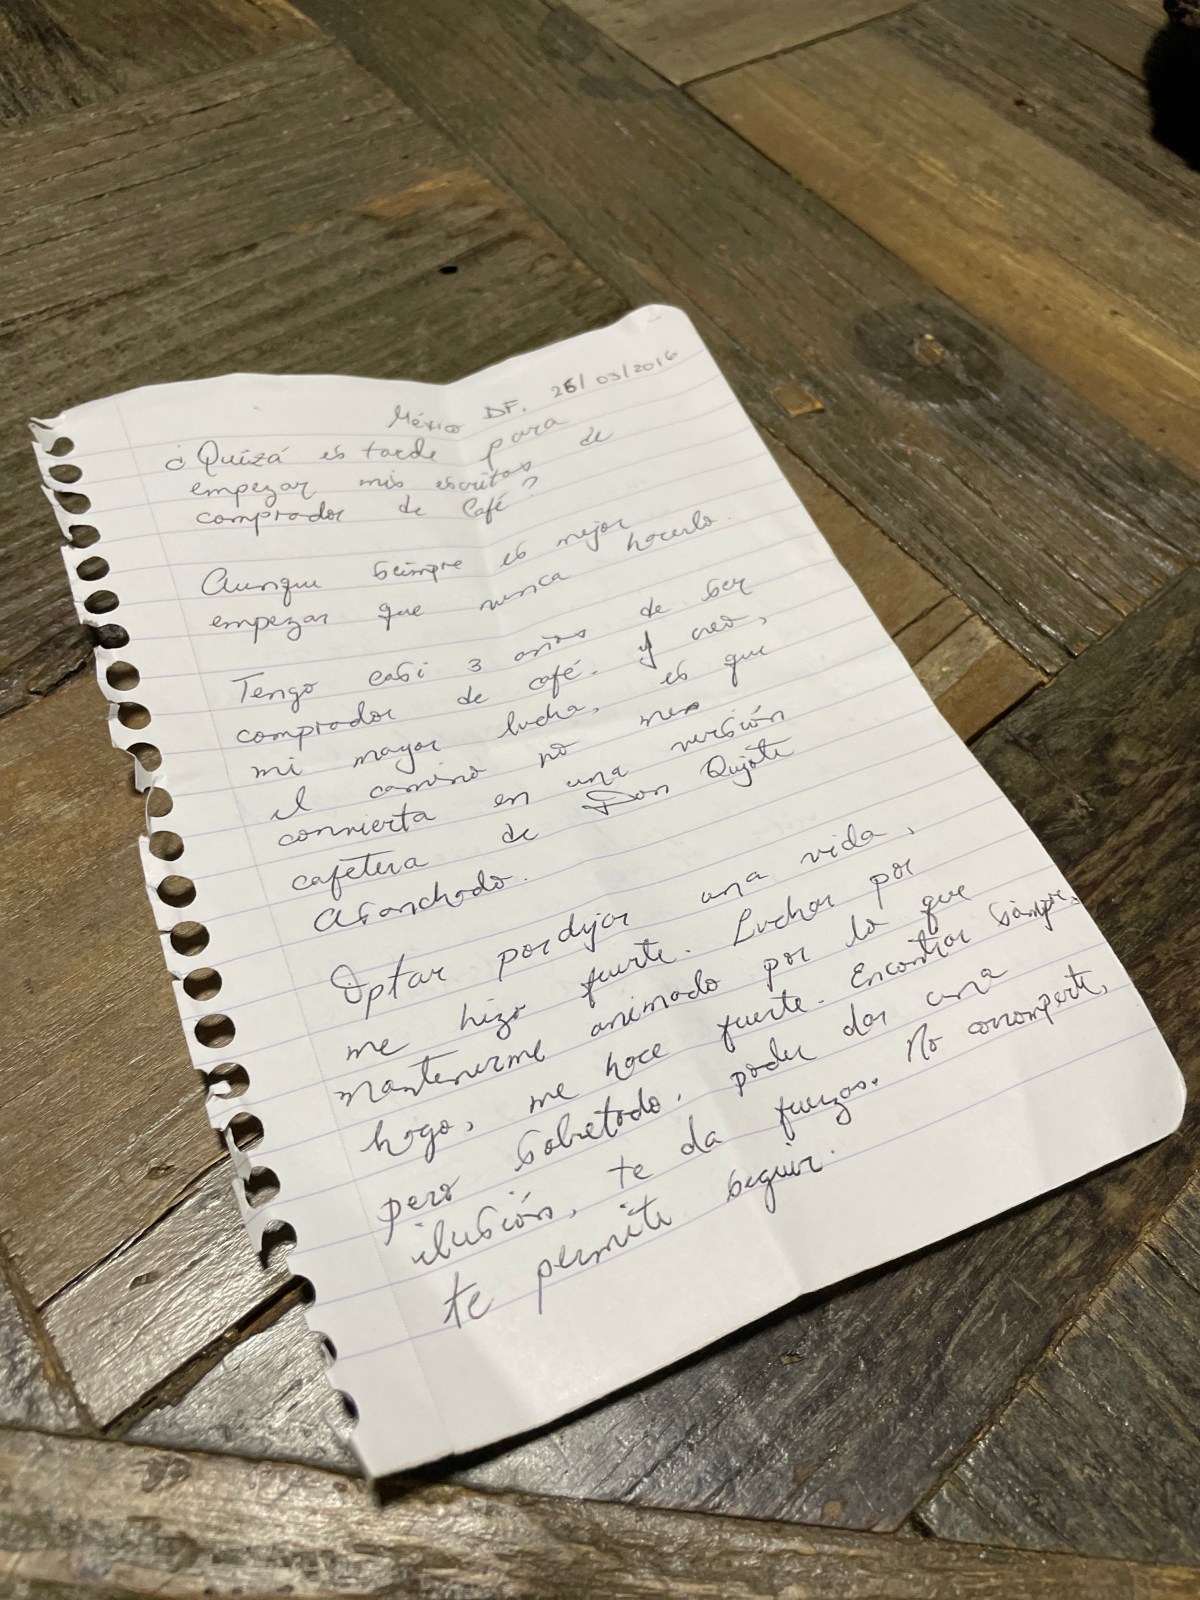 México DF. 26/03/2016
¿Quizá es tarde para
empezar mis escritos de
comprador de Café?
Aunque siempre es mejor
empezar que nunca hacerlo.
Tengo casi 3 años de ser
comprador de café. Y creo,
mi mayor lucha, es que
el camino no me
convierta en una versión
cafetera de Don Quijote
Asanchado.
Optar por dejar una vida,
me hizo fuerte. Luchar por
mantenerme animado por lo que
hago, me hace fuerte. Encontrar siempre,
pero sobretodo, poder dar una
ilusión, te da fuerzas. No corromperte,
te permite seguir.